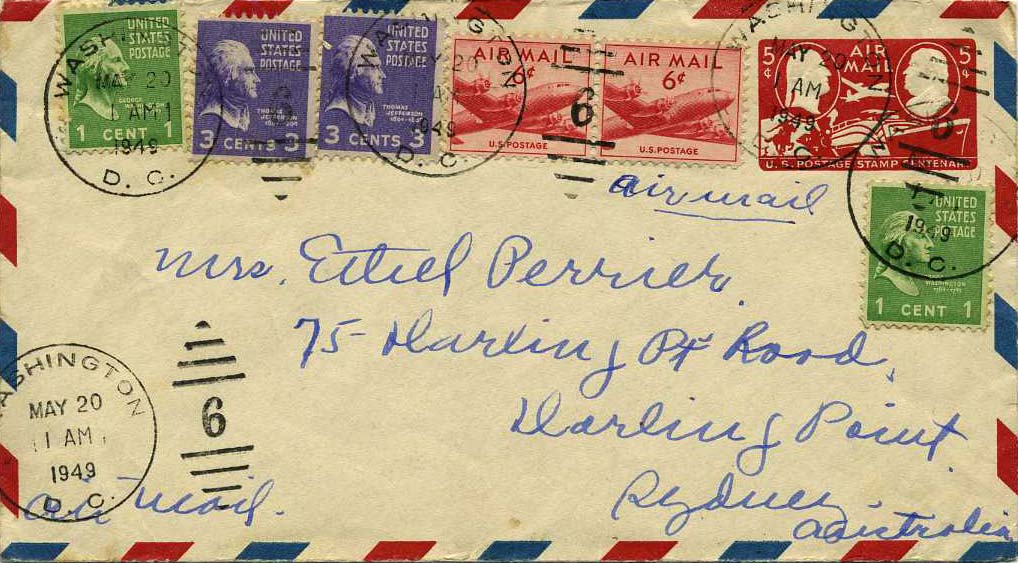 UNITED
STATES
POSTAGE
GEORGE
1 CENT 1
UNITED
STATES
POSTAGE
THOMAS
JEFFERSON
3 CENTS 3
UNITED
STATES
POSTAGE
THOMAS
JEFFERSON
3 CENTS 3
AIR MAIL
6¢
U.S. POSTAGE
AIR MAIL
6¢
U.S. POSTAGE
5¢ AIR MAIL 5¢
U.S. POSTAGE STAMP CENTENARY
MAY 20
1 AM
1949
D. C.
WASHINGTON
1949
D. C.
6
WASHINGTON
MAY 20
1 AM
1949
6
1949
D. C.
air mail
UNITED
STATES
POSTAGE
WASHINGTON
1 CENT 1
Mrs. Ethel Perrier
75 Darling Pt Road,
Darling Point
Sydney.
Australia
WASHINGTON
MAY 20
1 AM
1949
D. C.
6
air mail.